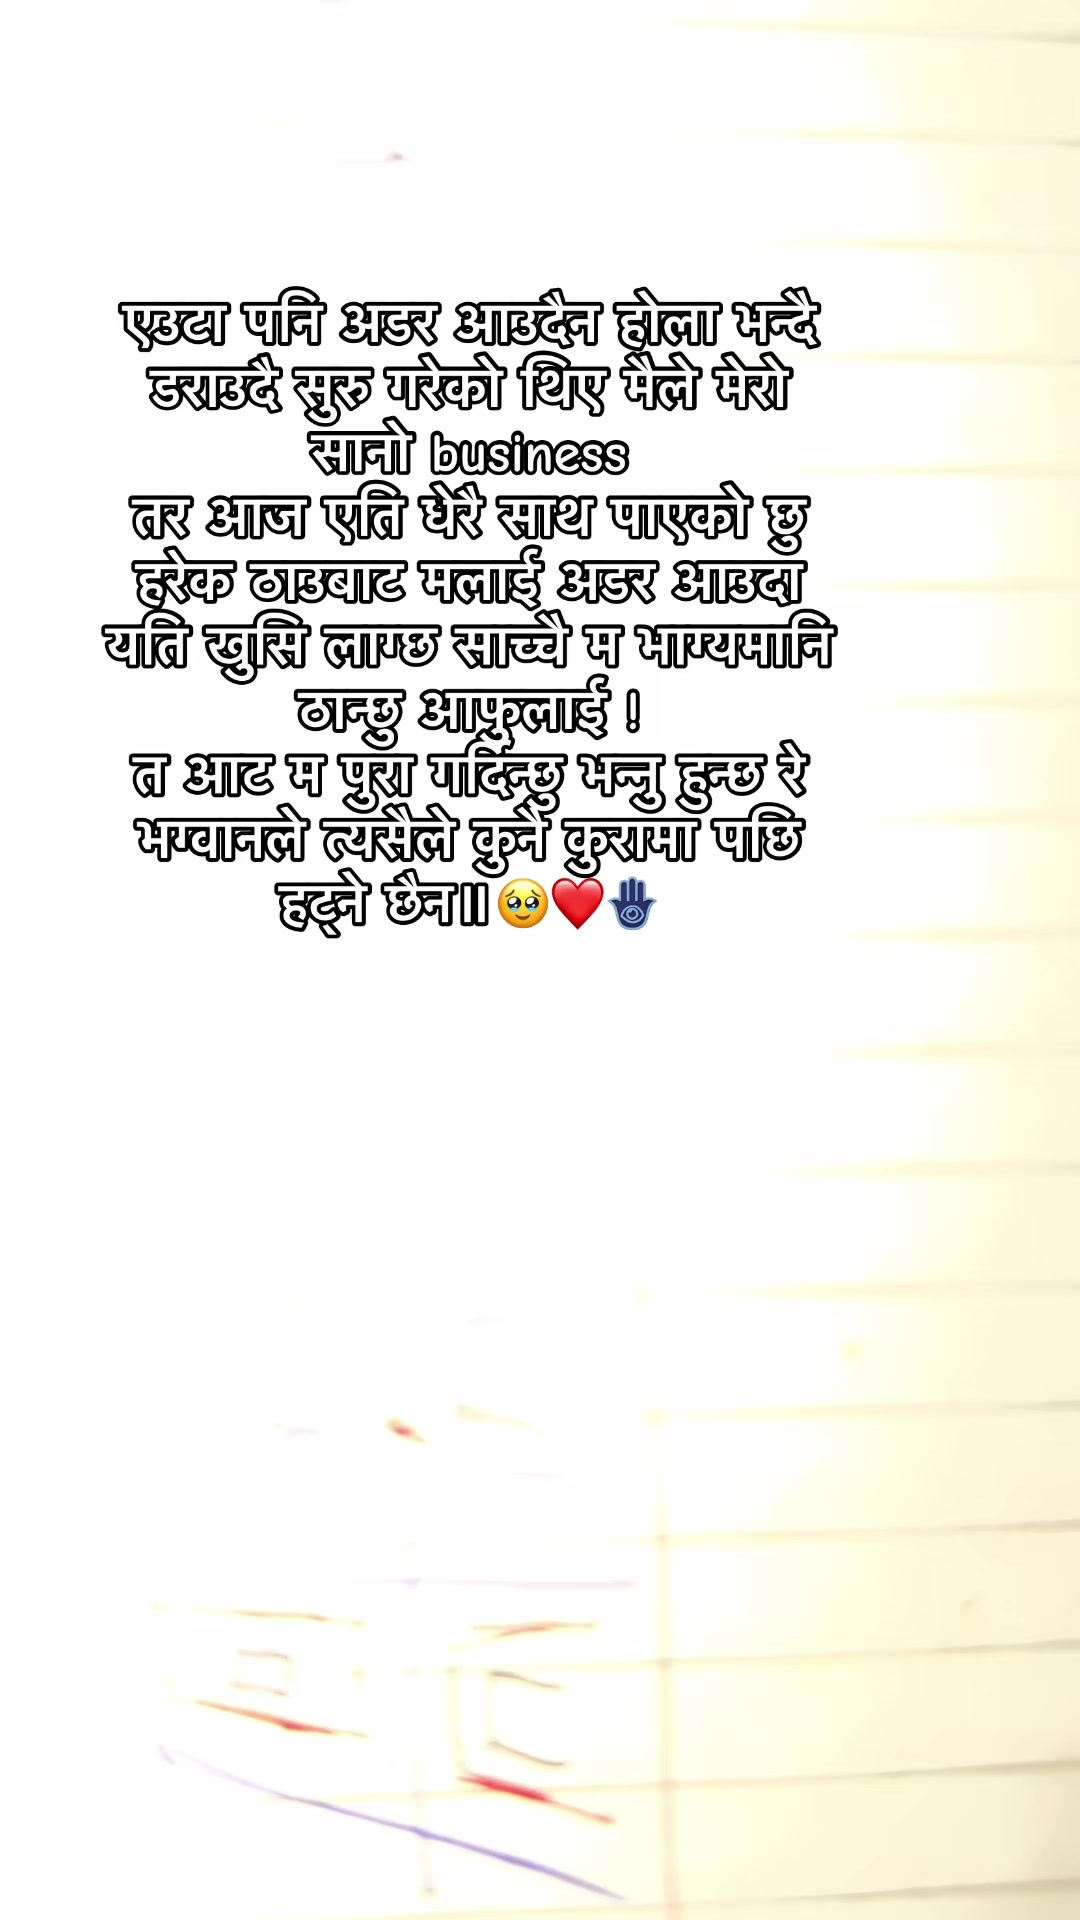 एउटा पनि अडर आउदैन होला भन्दै
डराउदै सुरु गरेको थिए मैले मेरो
सानो business
तर आज एति धेरै साथ पाएको छु
हरेक ठाउबाट मलाई अडर आउदा
यति खुसि लाग्छ साच्चै म भाग्यमानि
ठान्छु आफुलाई !
त आट म पुरा गर्दिन्छु भन्नु हुन्छ रे
भग्वानले त्यसैले कुनै कुरामा पछि
हट्ने छैन॥🥹❤️🪬